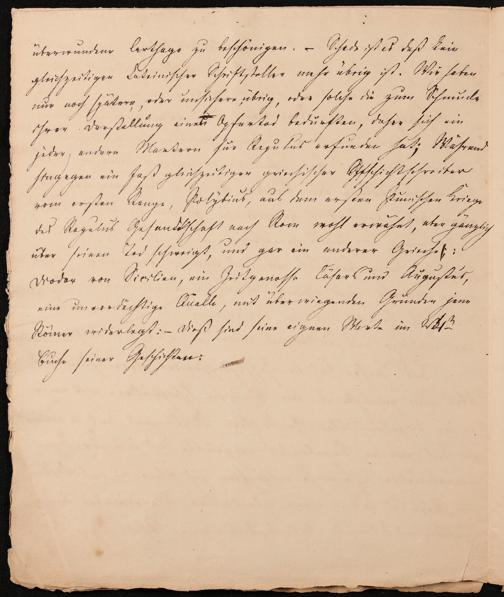 überwundene Carthago zu beschönigen. – Schade ist es daß kein
gleichzeitiger Lateinischer Schriftsteller mehr übrig ist. Wir haben
nur noch spätere, oder unsichere übrig, oder solche die zum Schmucke
ihrer Darstellung eines Opfertod bedurften, daher sich ein
jeder, andere Martern für Regulus erfunden hat; Während
hingegen ein fast gleichzeitiger griechischer Geschichtschreiber
vom ersten Range, Polybius, aus dem ersten Punischen Kriege
des Regulus Gesandtschaft nach Rom wohl erwähnt, aber gänzlich
über seinen Tod schweigt, und gar ein anderer Grieche:
Diodor von Sicilien, ein Zeitgenosse Cäsars und Augustus,
eine unverdächtige Quelle, mit überwiegenden Gründen jene
Römer widerlegt: – Dieß sind seine eignen Worte im
Buche seiner Geschichten: